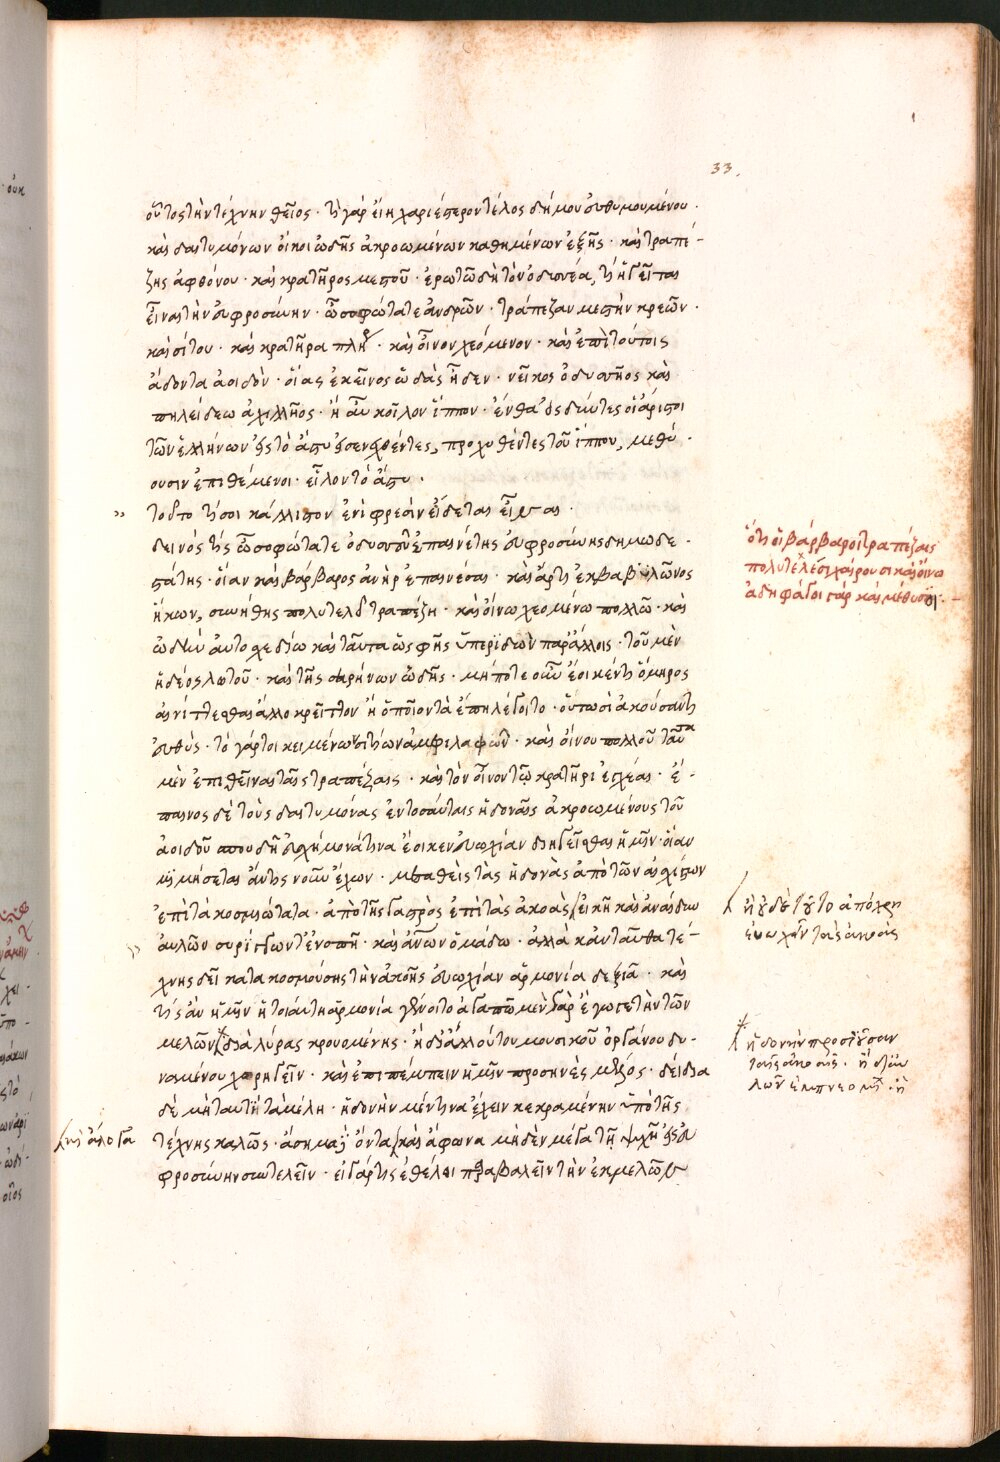 33
οὗτος τὴν τέχνην θεῖος · τί γὰρ εἴη χαριέστερον τέλος δήμου εὐθυμουμένου ·
καὶ δαιτυμόνων οἴκοι ᾠδῆς ἀκροωμένων καθημένων ἑξῆς · καὶ τραπέ-
ζης ἀφθόνου · καὶ κρατῆρος μεστοῦ · ἐρωτῶ δὴ τὸν ὀδυσσέα, τί ἡγεῖται
εἶναι τὴν εὐφροσύνην · ὦ σοφώτατε ἀνδρῶν · τράπεζαν μεστὴν κρεῶν ·
καὶ σίτου · καὶ κρατῆρα πλήρη · καὶ οἶνον χεόμενον · καὶ ἐπὶ τούτοις
ἄδοντα ἀοιδὸν · οἵας ἐκεῖνος ᾠδὰς ᾖδεν · νεῖκος ὀδυσσῆος καὶ
πηλείδεω ἀχιλλῆος · ἢ αὖ κοῖλον ἵππον · ἔνθα εἰσδύντες οἱ ἄριστοι
τῶν ἑλλήνων εἰς τὸ ἄστυ εἰσενεχθέντες, προχυθέντες τοῦ ἵππου, μεθύ ·
ουσιν ἐπιθέμενοι · εἷλον τὸ ἄστυ ·
τοῦτο τί σοι κάλλιστον ἐνὶ φρεσὶν εἴδεται εἶναι ·
δεινός τις ὦ σοφώτατε ὀδυσσεῦ ἐπαινέτης εὐφροσύνης δημωδε ·
στάτης · οἵαν καὶ βάρβαρος ἀνὴρ ἐπαινέσαι · καὶ ἄρτι ἐκ βαβυλῶνος
ἥκων, συνήθης πολυτελεῖ τραπέζῃ · καὶ οἴνῳ χεομένῳ πολλῷ · καὶ
ᾠδῇ αὐτοσχεδίῳ καὶ ταῦτα ὥς φῂς ὑπεριδὼν παρ' ἄλλοις · τοῦ μὲν
ἡδέος λωτοῦ · καὶ τῆς σειρήνων ᾠδῆς · μήποτε οὖν ἔοικέν τι ὅμηρος
αἰνίττεσθαι ἄλλο κρεῖττον ἢ ὁποῖον τὰ ἔπη λέγοι τὸ · οὑτωσὶ ἀκούσαντι
εὐθύς · τὸ γάρ τοι κειμένων σιτίων ἀμφιλαφῶν · καὶ οἴνου πολλοῦ ταῦτα
μὲν ἐπιθεῖναι ταῖς τραπέζαις · καὶ τὸν οἶνον τῷ κρατῆρι ἐγχέας · ἐ-
παινος δὲ τοὺς δαιτυμόνας ἐν τοσαύταις ἡδοναῖς ἀκροωμένους τοῦ
ἀοιδοῦ σπουδῇ εὐσχήμονά τινα ἔοικεν εὐωχίαν διηγεῖσθαι ἡμῖν · οἵαν
μιμήσεται ἄν τις νοῦν ἔχων · μεταθεὶς τὰς ἡδονὰς ἀπὸ τῶν αἰσχίστων
ἐπὶ τὰ κοσμιώτατα · ἀπὸ τῆς γαστρὸς ἐπὶ τὰς ἀκοὰς εἰκῆ καὶ ἀναίδην
αὐλῶν συρίγγων τ' ἐνοπῇ · καὶ ἀνθρώπων ὁμάδῳ · ἀλλὰ κἀνταῦθα τέ-
χνης δεῖ κατακοσμούσης τὴν ἀκοῆς εὐωχίαν ἁρμονίᾳ δεξιᾷ · καὶ
τίς ἂν ἡμῖν ἡ τοιαύτη ἁρμονία γένοιτο ἀγαπῶ μὲν γὰρ ἔγωγε τὴν τῶν
μελῶν διὰ λύρας κρουομένης · ἢ δι' ἄλλου του μουσικοῦ ὀργάνου δυ-
ναμένου χορηγεῖν · καὶ ἐπιπέμπειν ἡμῖν προσηνὲς μέλος · δέδια
δὲ μὴ ταυτὶ τὰ μέλη · ἡδονὴν μέν τινα ἔχειν κεκραμένην ὑπὸ τῆς
τέχνης καλῶς · ἄσημα δ' ὄντα καὶ ἄφωνα μηδὲν μέγα τῇ ψυχῇ εἰς εὐ
φροσύνην συντελεῖν · εἰ γάρ τις ἐθέλοι παραβαλεῖν τὴν ἐκ μελῶν
ὅτι οἱ βάρβαροι τραπέζαις
πολυτελέσι χαίρουσι καὶ οἴνῳ
ἀδηφάγοι γὰρ καὶ μέθυσοι ·
ἢ οὐδὲ τοῦτο ἀπόχρη
εὐωχεῖν τὰς ἀκοὰς
ἡδονὴν προσιοῦσαν
ταῖς ἀκοαῖς · ἢ δι' αὐ
λῶν ἐμπνεομένων · ἢ
καὶ ἄλογα